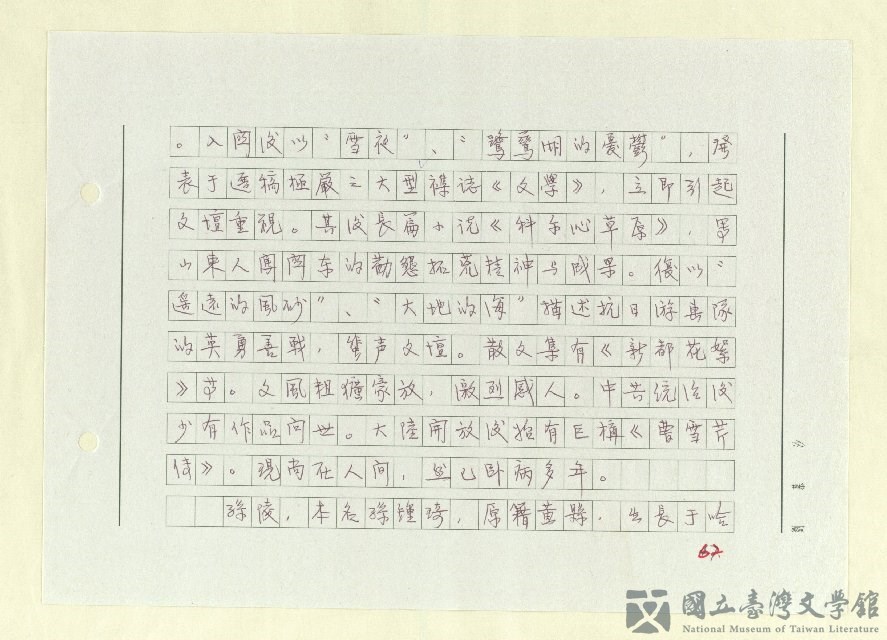 。入関後以“雪夜”、“鷺鷥湖的憂鬱”，發
表于選稿極嚴之大型襍誌《文學》，立即引起
文壇重視。其後長扁小说《科尔沁草原》，写
山東人闖関东的勤懇拓荒精神与成果。復以“
遥遠的風砂”、“大地的海”描述抗日游击隊
的英勇善戰，蜚声文壇。散文集有《新都花絮
》等。文風粗獷豪放，激烈感人。中共統治後
少有作品问世。大陸開放後拥有巨構《曹雪芹
传》。現尚在人间，然已卧病多年。
孫陵，本名孫鍾琦，原籍黄縣，生長于哈
67
國立臺灣文學館
National Museum of Taiwan Literature